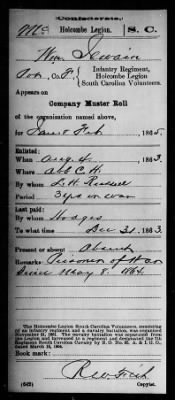 Confederate.
Mc Holcombe Legion. S. C.
Wm. Swain
Pvt, Co. F, Infantry Regiment, Holcombe Legion South Carolina Volunteers.
Appears on
Company Muster Roll
of the organization named above,
for Jan & Feb, 1865.
Enlisted:
When Aug. 4, 1863.
Where Abb C.H.
By whom L.H. Russell
Period 3 yrs or war
Last paid:
By whom Hodges
To what time Dec 31, 1863.
Present or absent Absent
Remarks: Prisoner of War
Since May 8, 1864.
The Holcombe Legion South Carolina Volunteers, consisting
of an infantry regiment and a cavalry battalion, was organized
November 21, 1861. The cavalry battalion was separated from
the Legion and increased to a regiment and designated the 7th
Regiment South Carolina Cavalry by S. O. No. 65, A. & I. G. O.,
dated March 18, 1864.
Book mark:
(642)
Copyist.